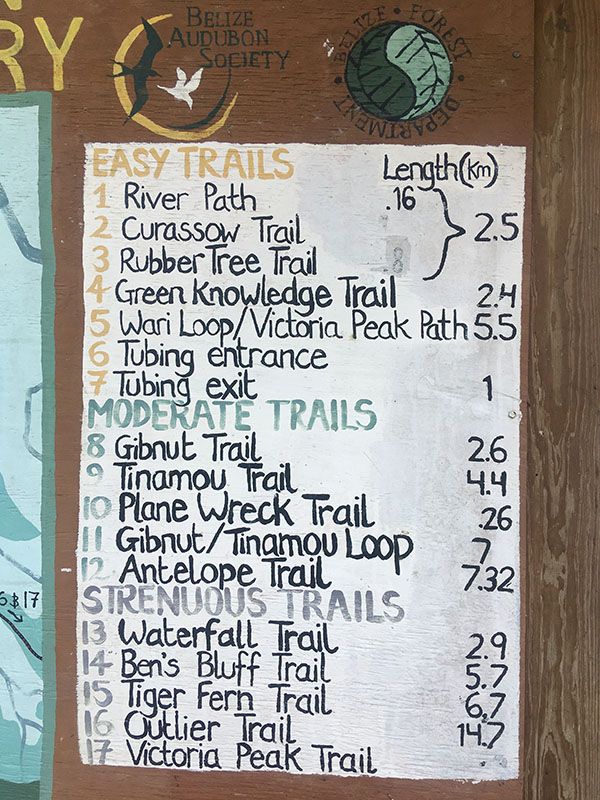 RY
BELIZE
AUDUBON
SOCIETY
BELIZE · FOREST · DEPARTMENT ·
EASY TRAILS Length (km)
1 River Path .16
2 Curassow Trail 2.5
3 Rubber Tree Trail .8
4 Green Knowledge Trail 2.4
5 Wari Loop/Victoria Peak Path 5.5
6 Tubing entrance
7 Tubing exit 1
MODERATE TRAILS
8 Gibnut Trail 2.6
9 Tinamou Trail 4.4
10 Plane Wreck Trail .26
11 Gibnut/Tinamou Loop 7
12 Antelope Trail 7.32
STRENUOUS TRAILS
13 Waterfall Trail 2.9
14 Ben's Bluff Trail 5.7
15 Tiger Fern Trail 6.7
16 Outlier Trail 14.7
17 Victoria Peak Trail .
6$17